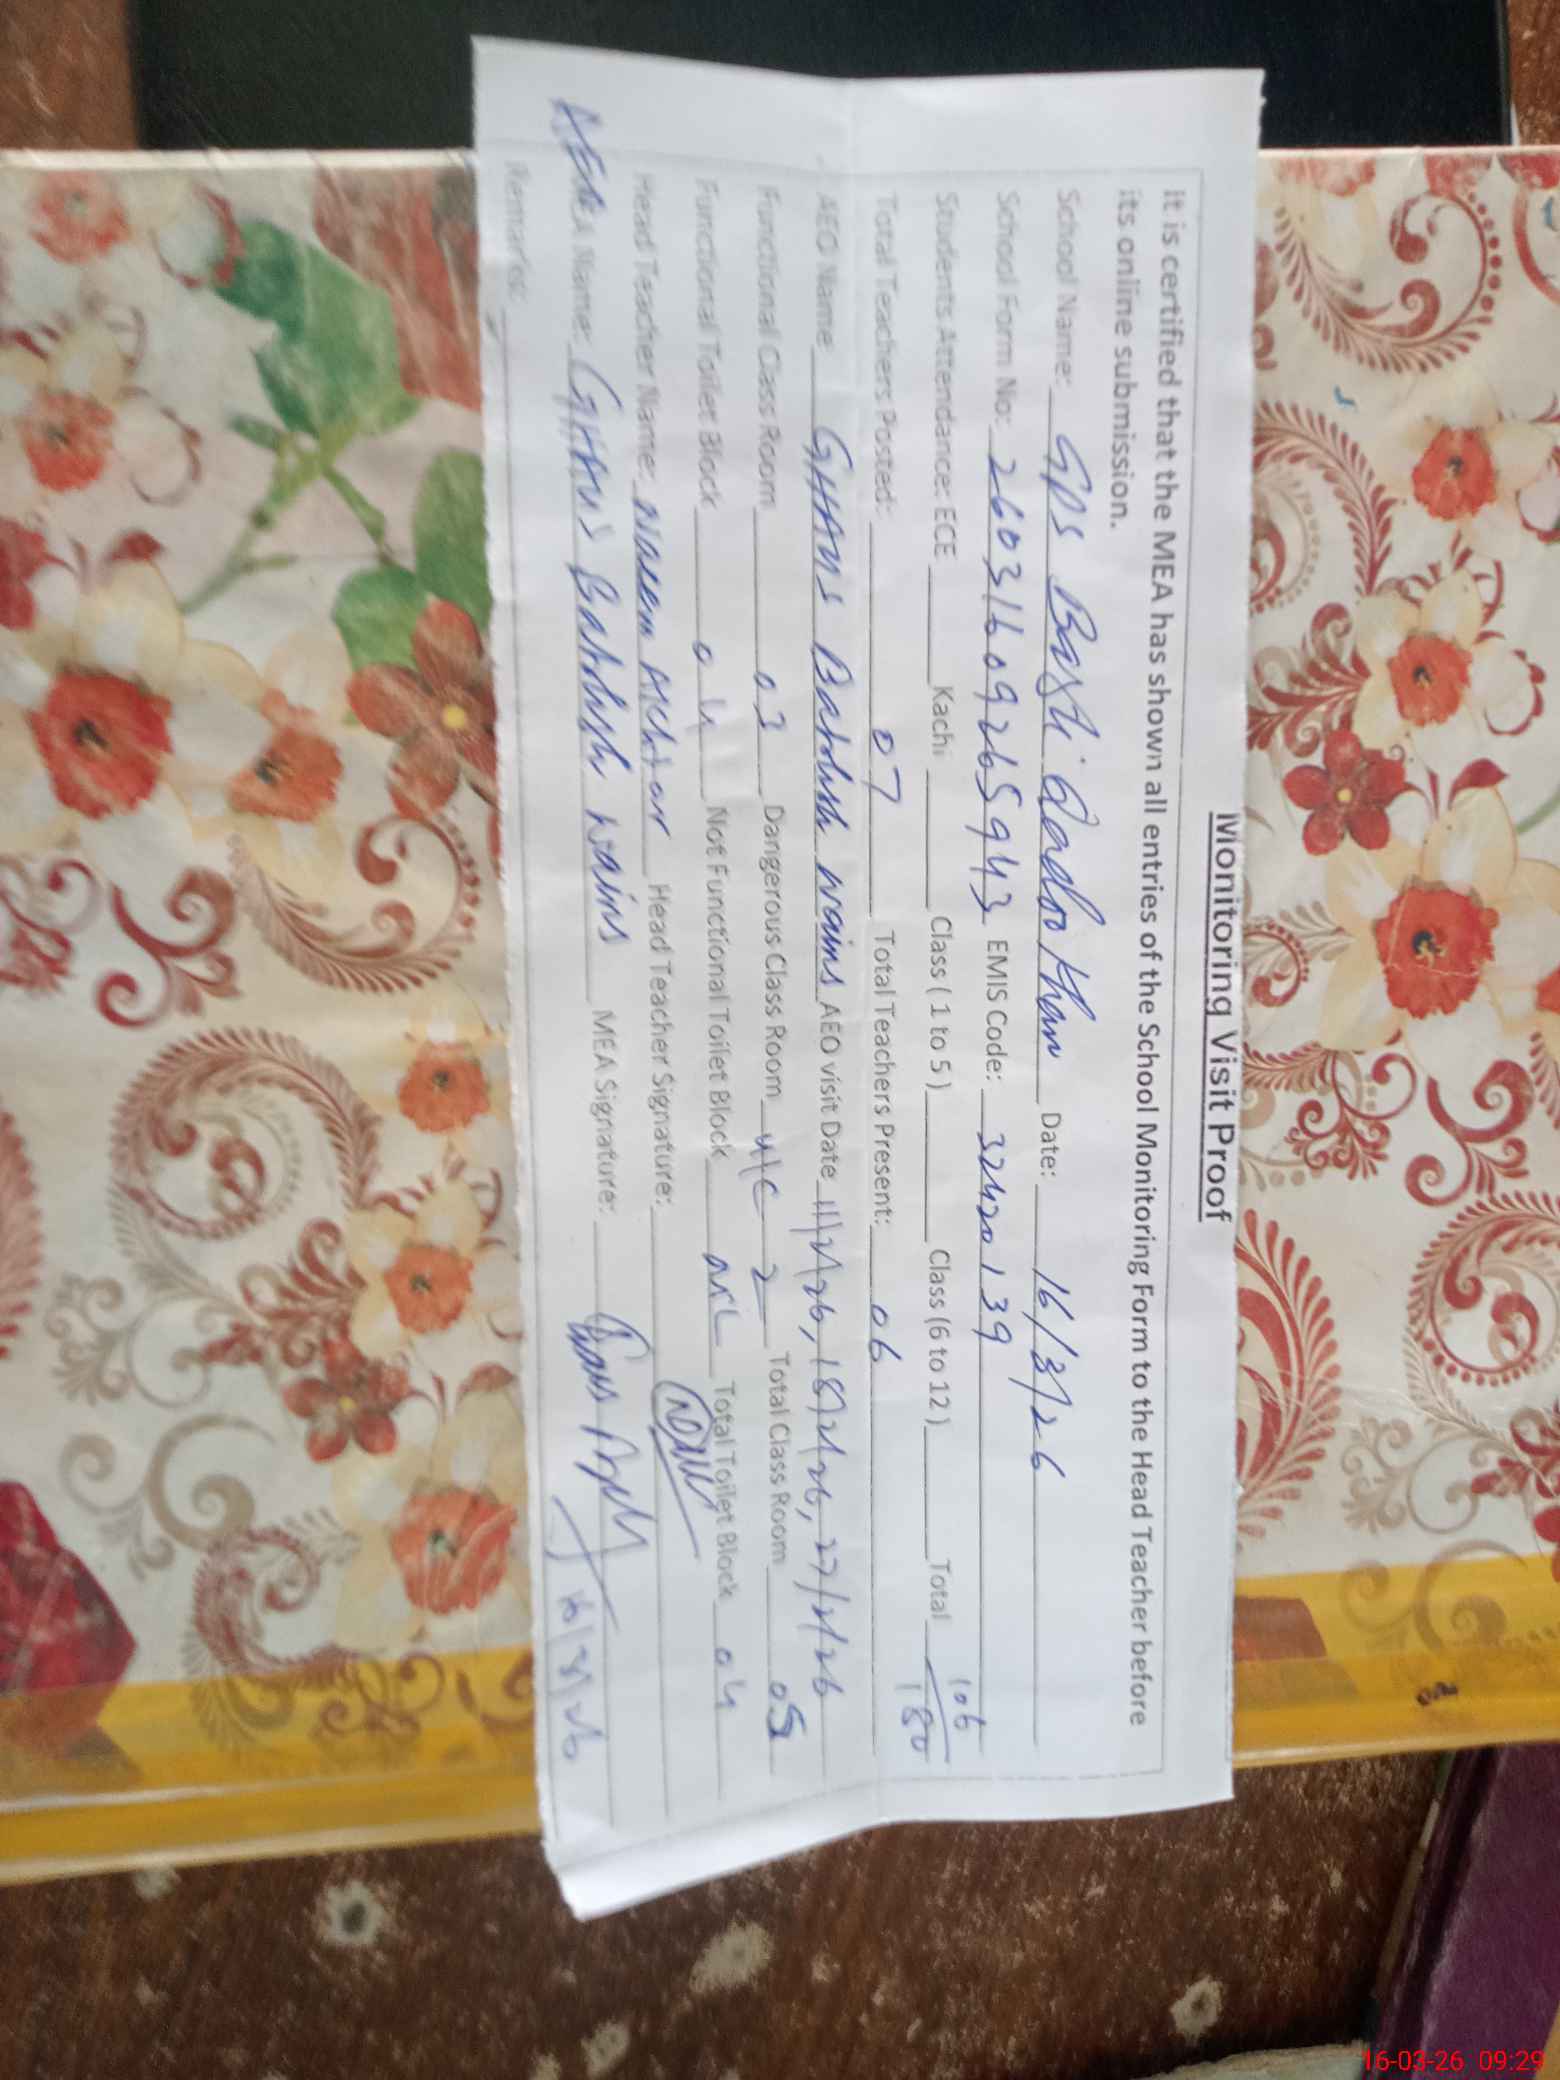 Monitoring Visit Proof
It is certified that the MEA has shown all entries of the School Monitoring Form to the Head Teacher before
its online submission.
School Name: GPS Basti Qadoo Khan Date: 16/3/26
School Form No: 26031609265943 EMIS Code: 32420139
Students Attendance: ECE Kachi Class ( 1 to 5 ) Class (6 to 12 ) Total 106/180
Total Teachers Posted: 07 Total Teachers Present: 06
AEO Name GHAUS Bakhsh wains AEO visit Date 11/2/26, 18/2/26, 27/2/26
Functional Class Room 03 Dangerous Class Room u/c 2 Total Class Room 05
Functional Toilet Block 04 Not Functional Toilet Block NIL Total Toilet Block 04
Head Teacher Name: Naeem Akhtar Head Teacher Signature:
MEA Name: GHAUS Bakhsh wains MEA Signature: 16/3/26
Remarks:
16-03-26 09:29